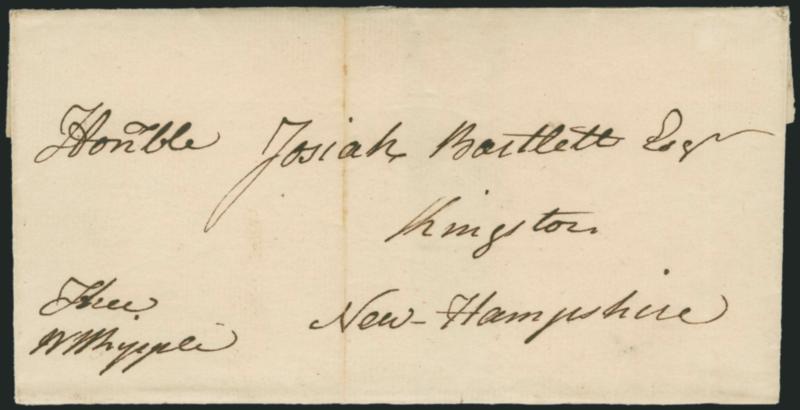 Honble Josiah Bartlett Esqr
Kingston
New-Hampshire
Free
Wm Whipple